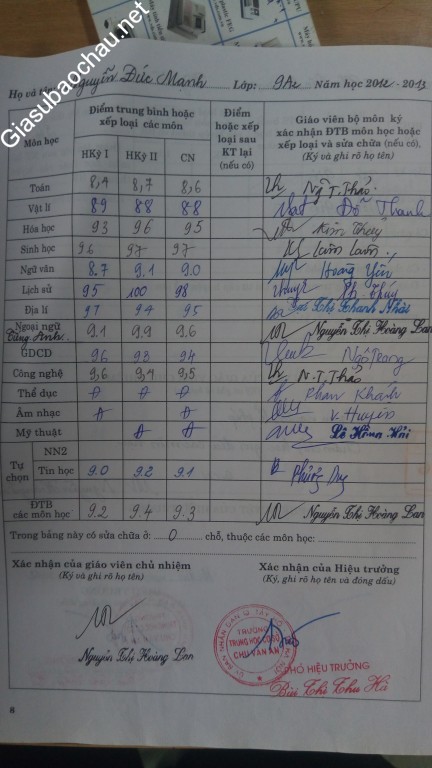 Giasubaochau.net
Họ và tên: Nguyễn Đức Mạnh Lớp: 9A2 Năm học 2012 - 2013
Môn học Điểm trung bình hoặc xếp loại các môn Điểm hoặc xếp loại sau KT lại (nếu có) Giáo viên bộ môn ký xác nhận ĐTB môn học hoặc xếp loại và sửa chữa (nếu có), (Ký và ghi rõ họ tên)
HKỳ I HKỳ II CN
Toán 8,4 8,7 8,6 Ng T. Thảo
Vật lí 89 88 88 Đỗ Thanh
Hóa học 93 96 95 Kim Thúy
Sinh học 96 97 97
Ngữ văn 8.7 9.1 9.0 Hoàng Yến
Lịch sử 95 100 98
Địa lí 97 94 95
Ngoại ngữ Tiếng Anh 9.1 9.9 9.6 Nguyễn Thị Hoàng Lan
GDCD 96 93 94 Ngô Trang
Công nghệ 9,6 9,4 9,5 N.T. Thảo
Thể dục Đ Đ Đ Phan Khánh
Âm nhạc Đ Đ V. Huyền
Mỹ thuật Đ Đ
Tự chọn NN2
Tin học 9.0 9.2 9.1 Duy
ĐTB các môn học 9.2 9.4 9.3 Nguyễn Thị Hoàng Lan
Trong bảng này có sửa chữa ở: 0 chỗ, thuộc các môn học:
Xác nhận của giáo viên chủ nhiệm
(Ký và ghi rõ họ tên)
Nguyễn Thị Hoàng Lan
Xác nhận của Hiệu trưởng
(Ký, ghi rõ họ tên và đóng dấu)
TRƯỜNG
TRUNG HỌC CƠ SỞ
CHU VĂN AN
PHÓ HIỆU TRƯỞNG
Bùi Thị Thu Hà
8